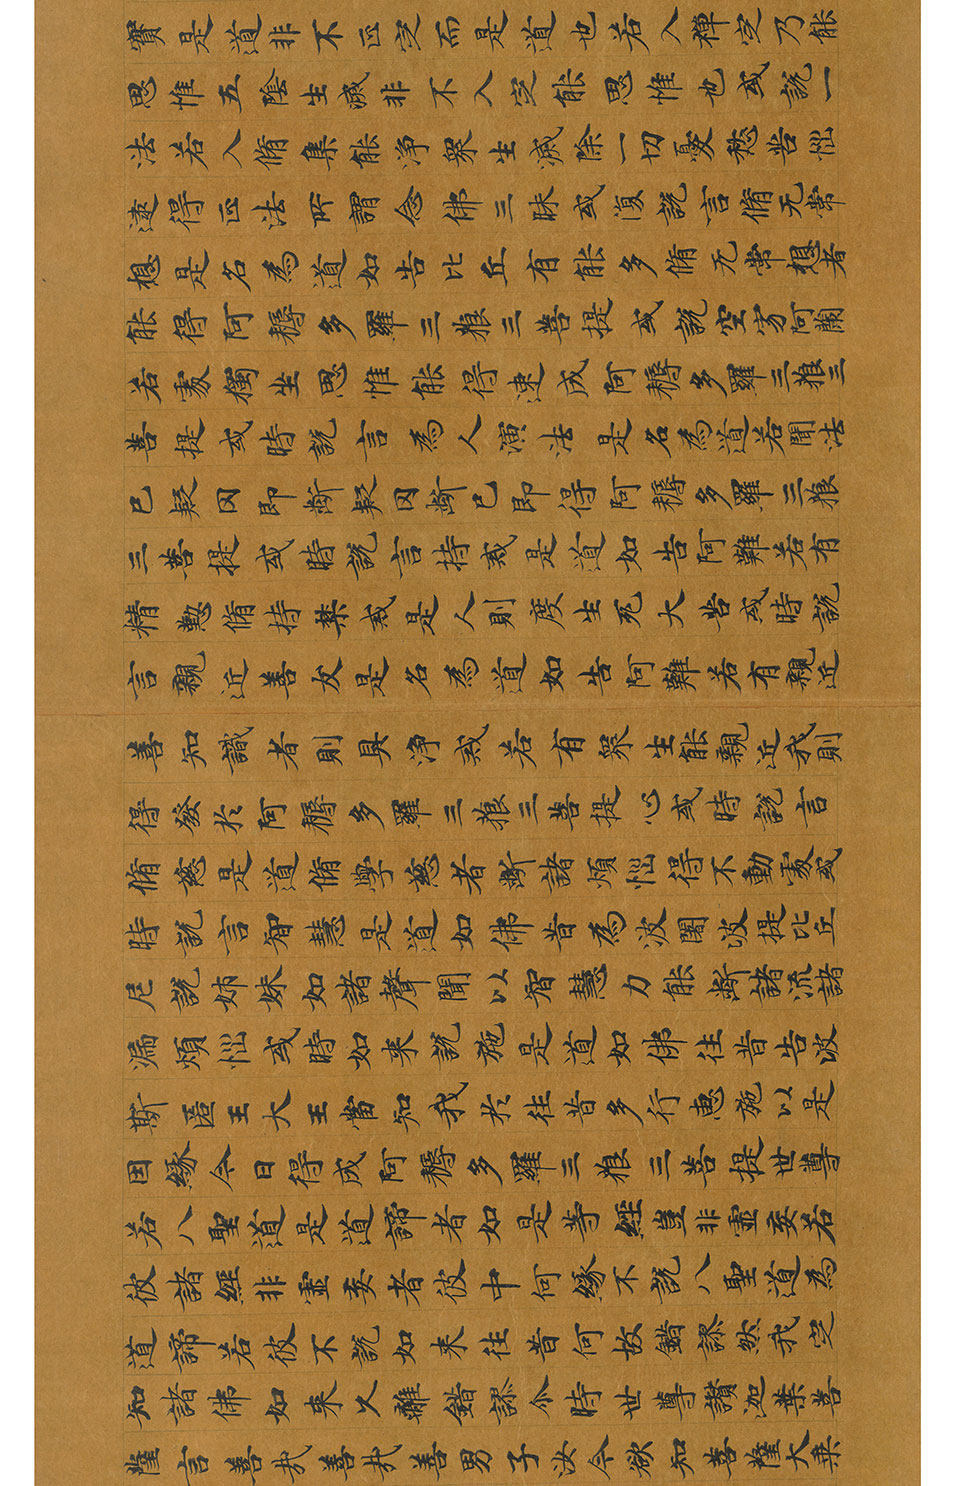 實是道非不正定而是道也若入禪定乃能
思惟五陰生滅非不入定能思惟也或說一
法若人脩集能淨眾生滅除一切憂愁苦惱
逮得正法所謂念佛三昧或復說言脩无常
想是名為道如告比丘有能多脩无常想者
能得阿耨多羅三藐三菩提或說空寂阿蘭
若處獨坐思惟能得速成阿耨多羅三藐三
菩提或時說言為人演法是名為道若聞法
已疑网即斷疑网斷已即得阿耨多羅三藐
三菩提或時說言持戒是道如告阿難若有
精懃脩持禁戒是人則度生死大苦或時說
言親近善友是名為道如告阿難若有親近
善知識者則具淨戒若有眾生能親近我則
得發於阿耨多羅三藐三菩提心或時說言
脩慈是道脩學慈者斷諸煩惱得不動處或
時說言智慧是道如佛昔為波闍波提比丘
尼說姊妹如諸聲聞以智慧力能斷諸流諸
漏煩惱或時如来說施是道如佛往昔告波
斯匿王大王當知我於往昔多行惠施以是
因緣今日得成阿耨多羅三藐三菩提世尊
若八聖道是道諦者如是等經豈非虛妄若
彼諸經非虛妄者彼中何緣不說八聖道為
道諦若彼不說如来往昔何故錯謬然我定
知諸佛如来久離錯謬尒時世尊讚迦葉菩
薩言善哉善哉善男子汝今欲知菩薩大乘